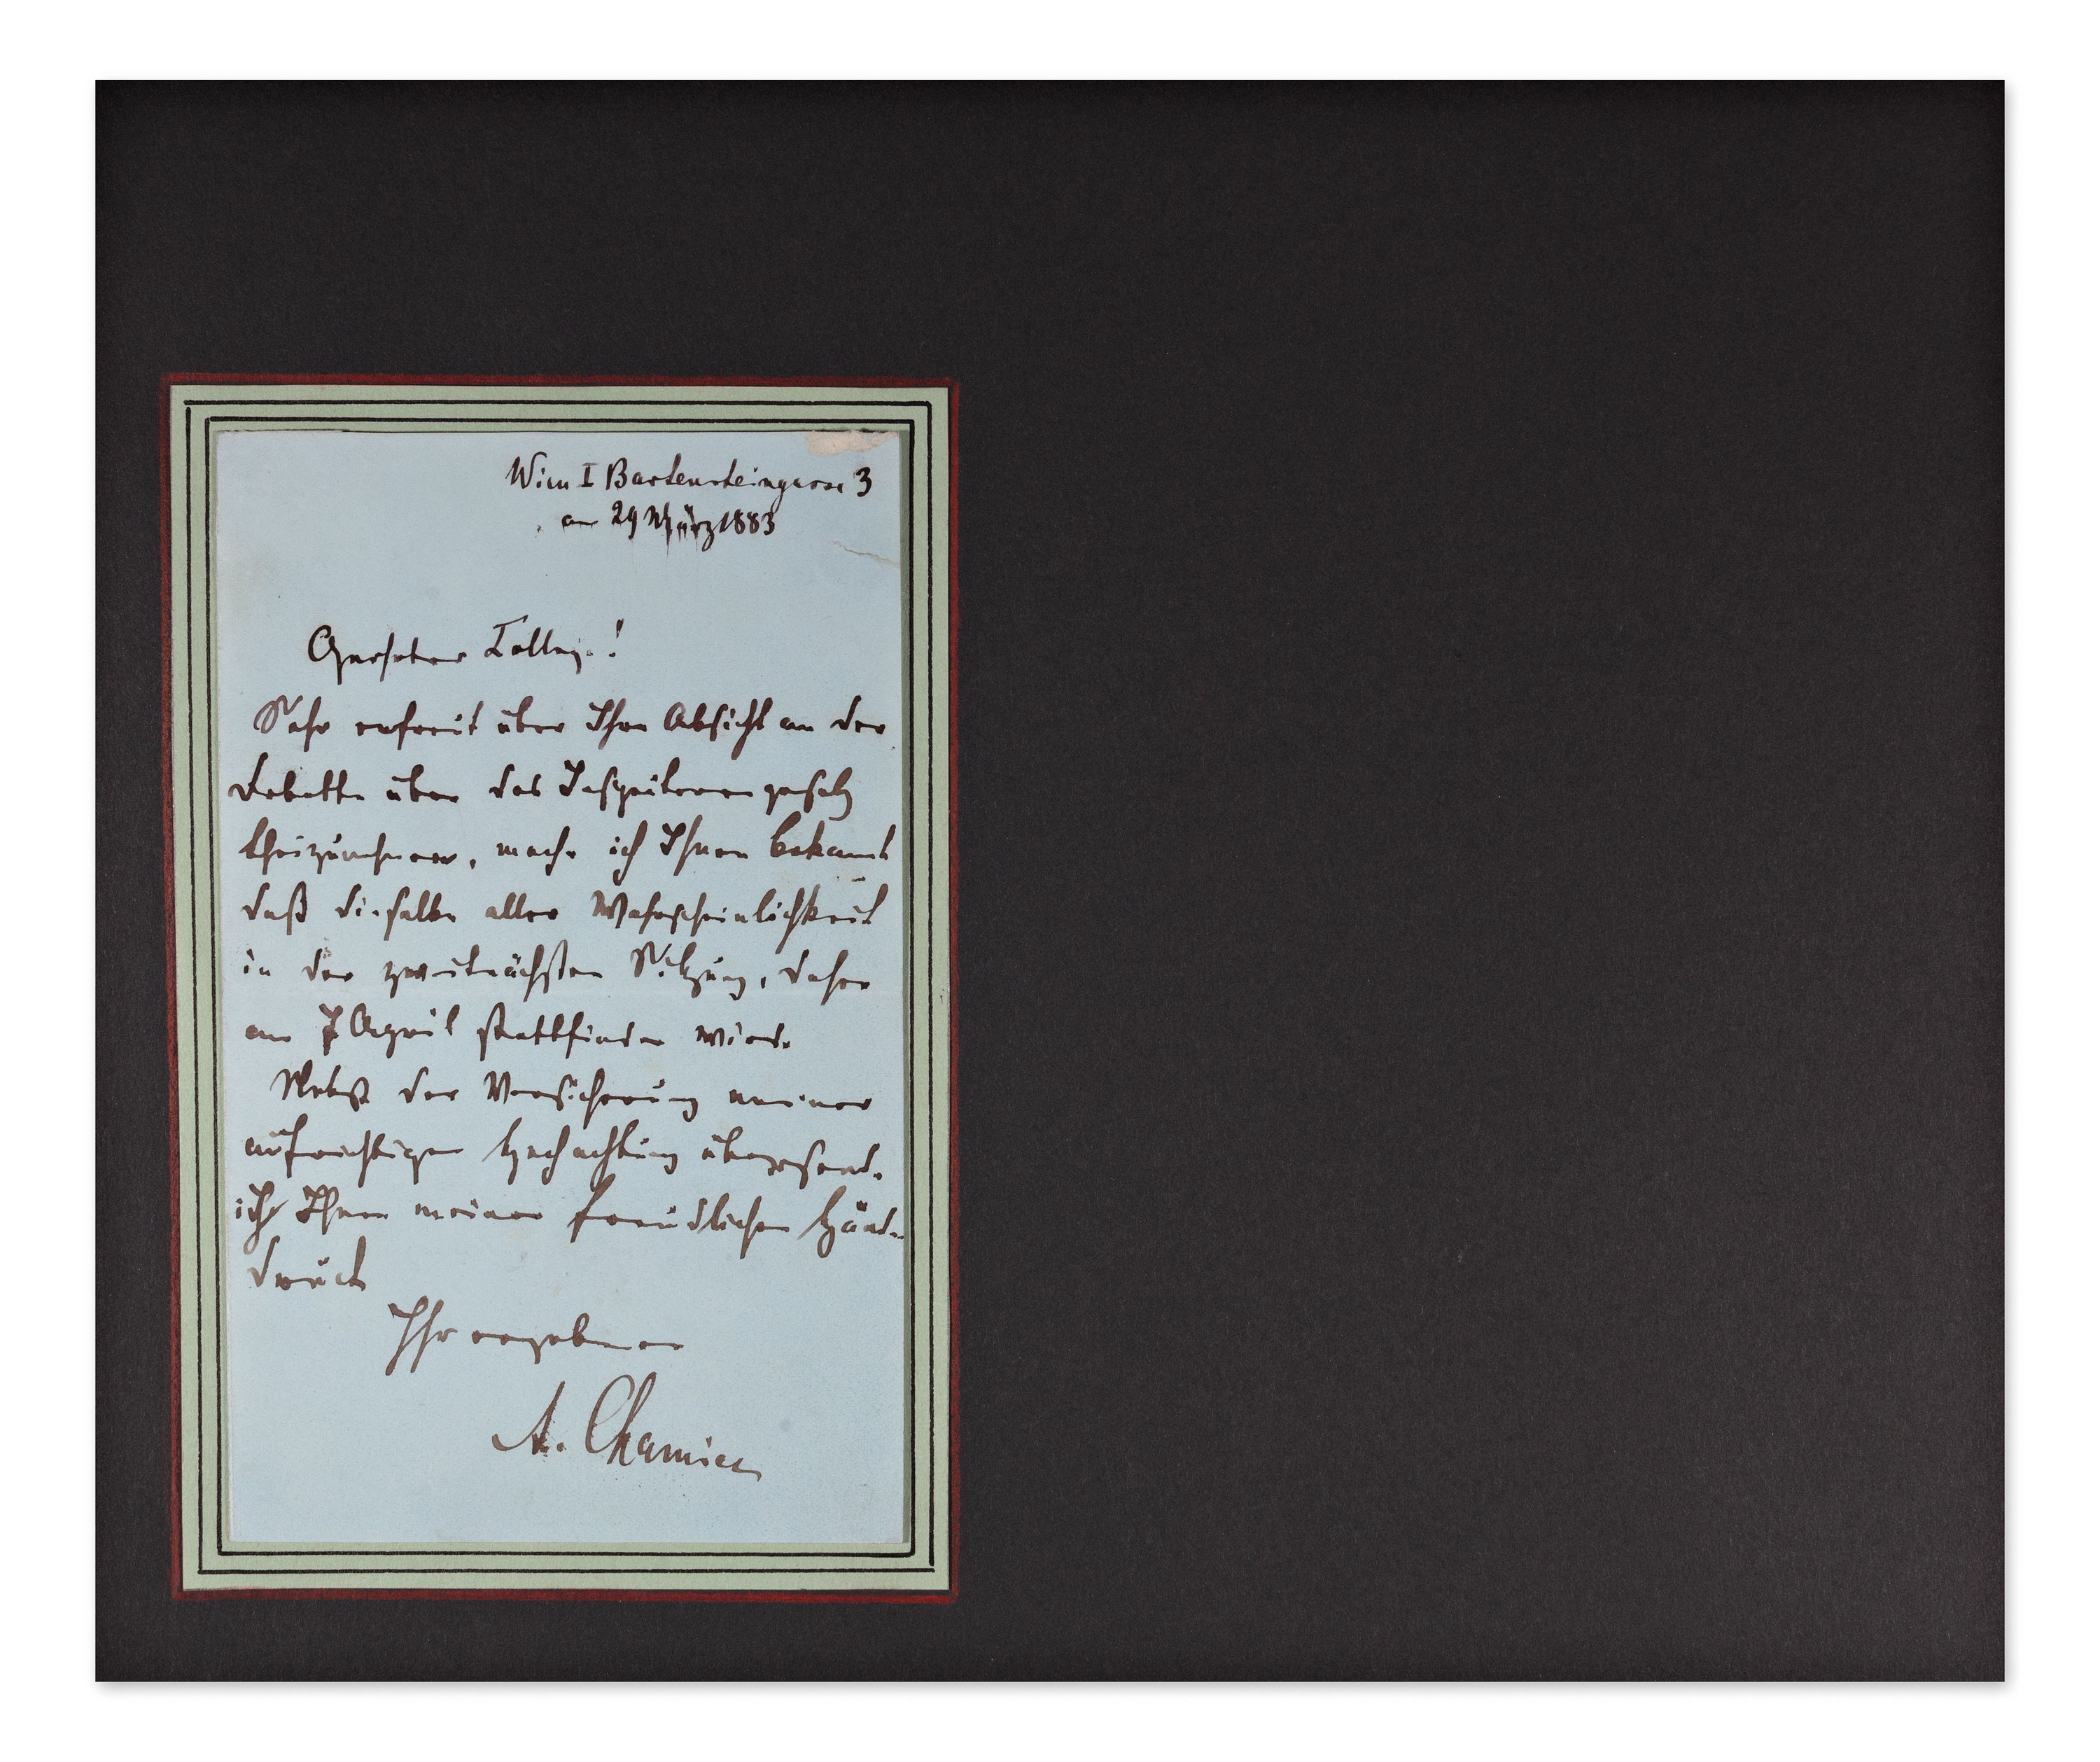 Wien I Bartensteingasse 3
am 29 März 1883
Geehrter College!
Sehr erfreut über Ihre Absicht an der
Debatte über das Inspectorengesetz
theilzunehmen, mache ich Ihnen bekannt
daß dieselbe aller Wahrscheinlichkeit
in der zweitnächsten Sitzung, daher
am 7 April stattfinden wird.
Nebst der Versicherung meiner
aufrichtigen Hochachtung übersende
ich Ihnen meinen freundlichen Hände
druck
Ihr ergebener
A.